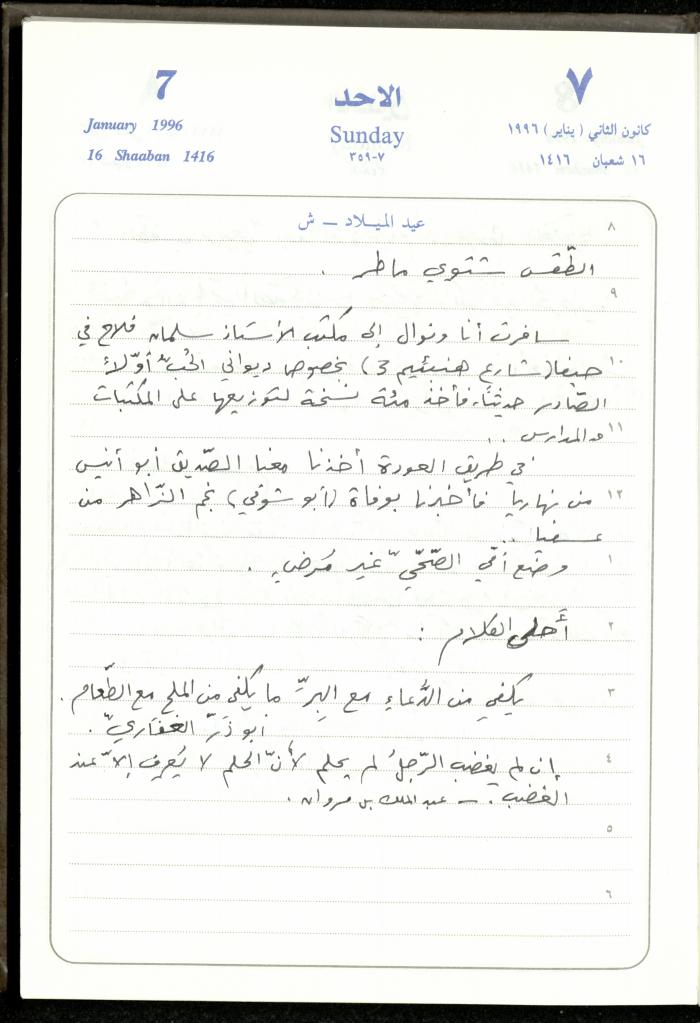 7
٧
الاحد
January 1996
كانون الثاني ( يناير ) ١٩٩٦
Sunday
16 Shaaban 1416
١٦ شعبان ١٤١٦
٧-٣٥٩
عيد الميـلاد – ش
٨
الطّقس شتوي ماطر .
٩
سافرت أنا ونوال إلى مكتب الأستاذ سلمان فلاح في
١٠
حيفا (شارع هنبئيم 3) بخصوص ديواني الحُبّ أوّلاً
الصّادر حديثًا، فأخذ مئة نسخة لتوزيعها على المكتبات
١١
والمدارس ..
في طريق العودة أخذنا معنا الصّديق أبو أنيس
١٢
من نهاريا فأخبرنا بوفاة (أبو شوقي) نجم الزّاهر من
عسفيا ..
١
وضع أمّي الصّحّيّ غير مُرضٍ .
٢
أَحلى الكلام :
٣
يكفي من الدُّعاءِ مع البِرِّ ما يكفي من الملح مع الطّعام .
أبو ذَرّ الغفاريّ .
٤
إن لم يغضب الرّجلُ لم يحلم لأنّ الحلم لا يُعرف إلاّ عند
الغضب . – عبد الملك بن مروان .
٥
٦